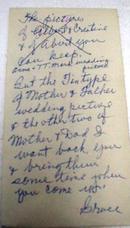 The pictures
of Albert & Christine
& of Albert you
can keep
But the Tintype
of Mother & Father
wedding picture
& the other two of
Mother & Dad I
want back, you
& bring them
some time when
you come up.
Grace